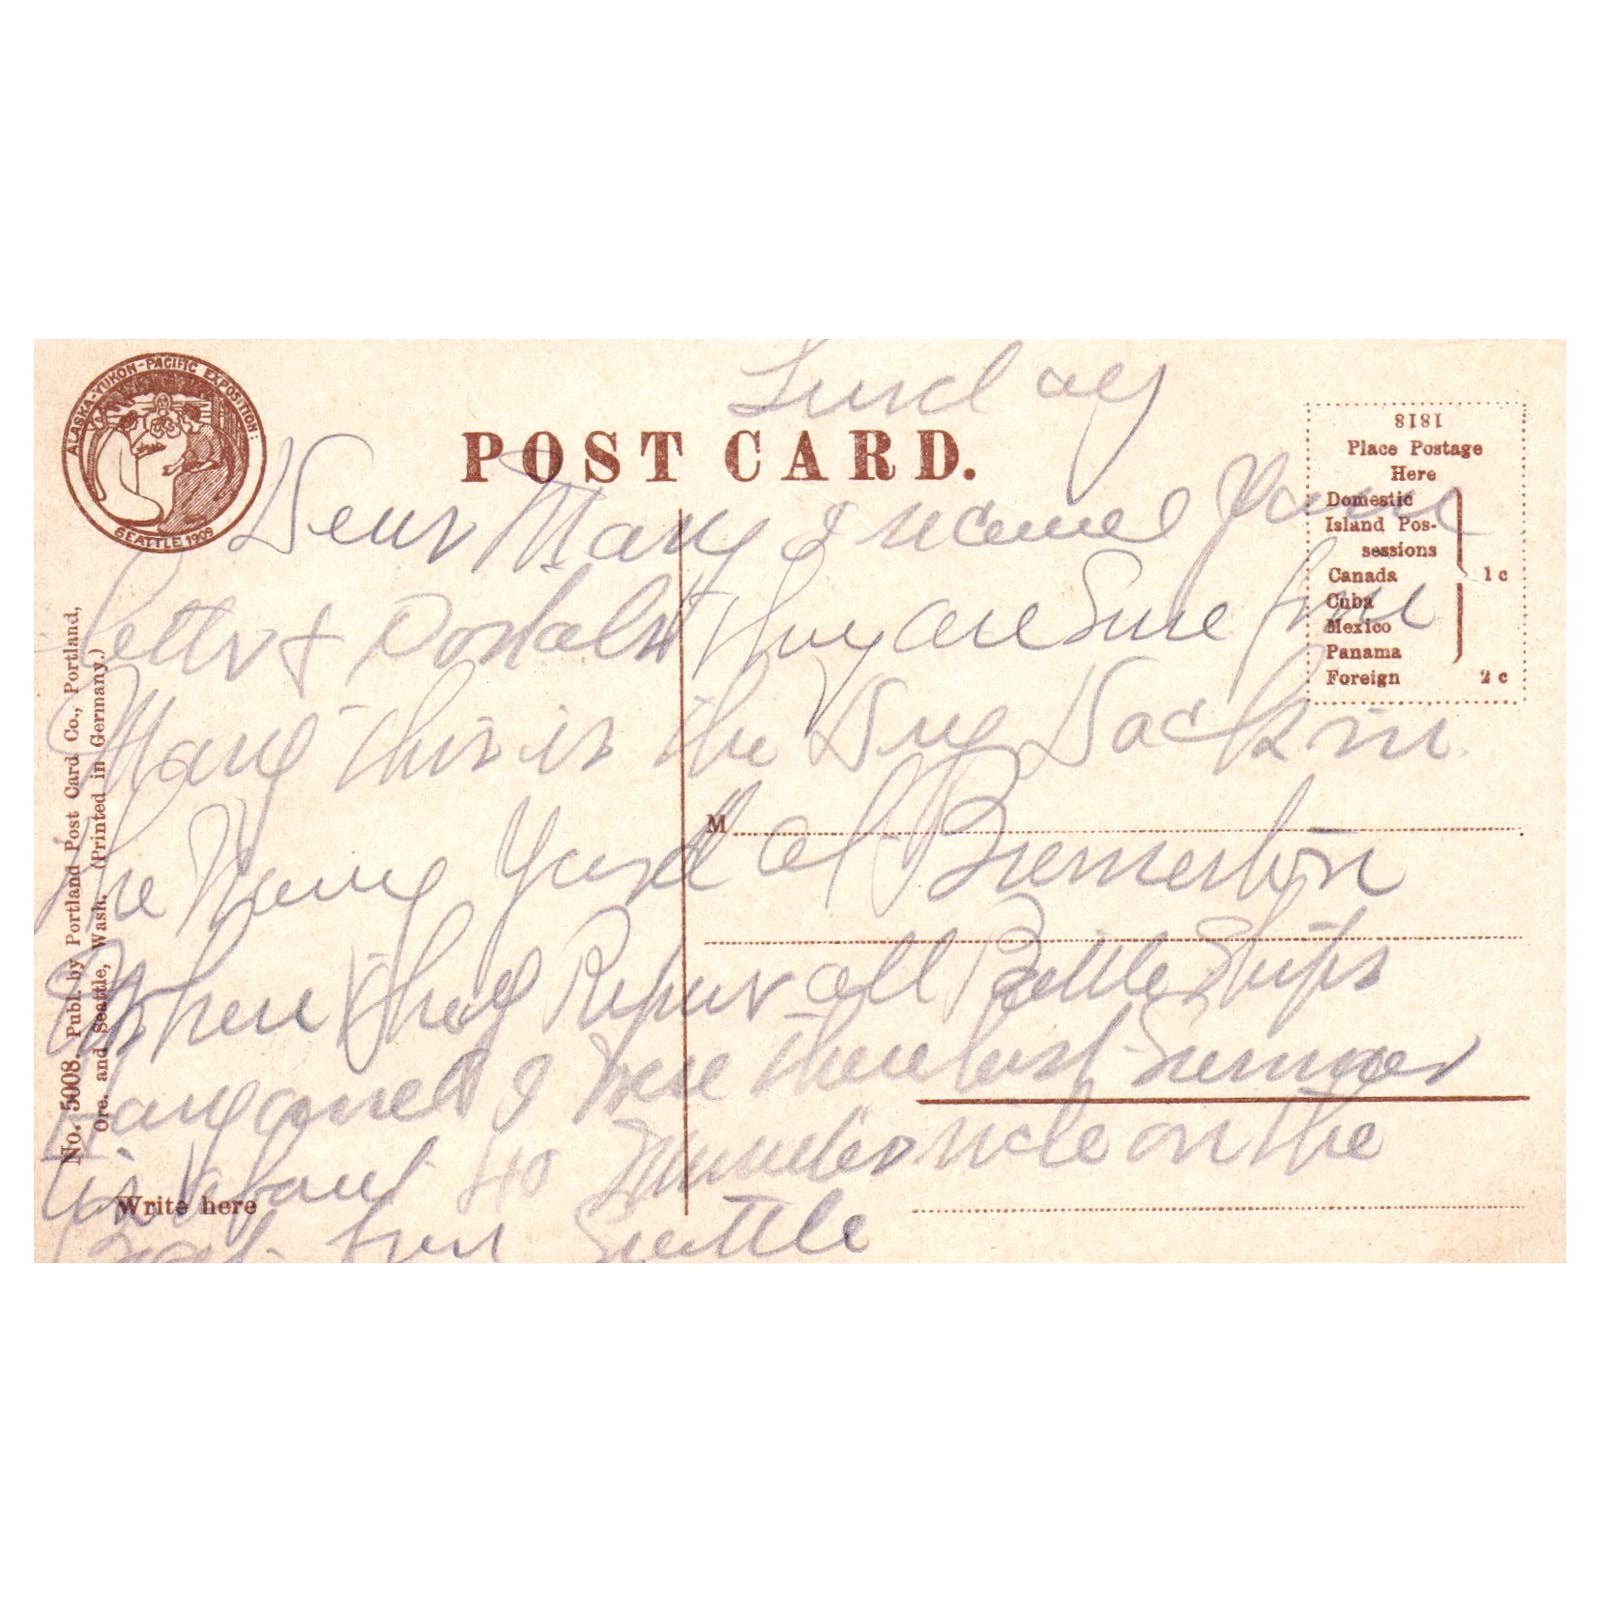 ALASKA-YUKON-PACIFIC EXPOSITION:
SEATTLE 1909
Sunday
POST CARD.
1818
Place Postage
Here
Domestic
Island Pos-
sessions
Canada
Cuba
Mexico
Panama
1 c
Foreign 2 c
Dear Mary I received your
letter & Donalst they are Sure fine
Mary this is the Dry Dock in
the Navy Yard at Bremerton
Where they Repair all Battle Ships
and I were there last Summer
it is about 40 minutes ride on the
Boat from Seattle
M
No. 5008. Publ. by Portland Post Card Co., Portland,
Ore. and Seattle, Wash. (Printed in Germany.)
Write here